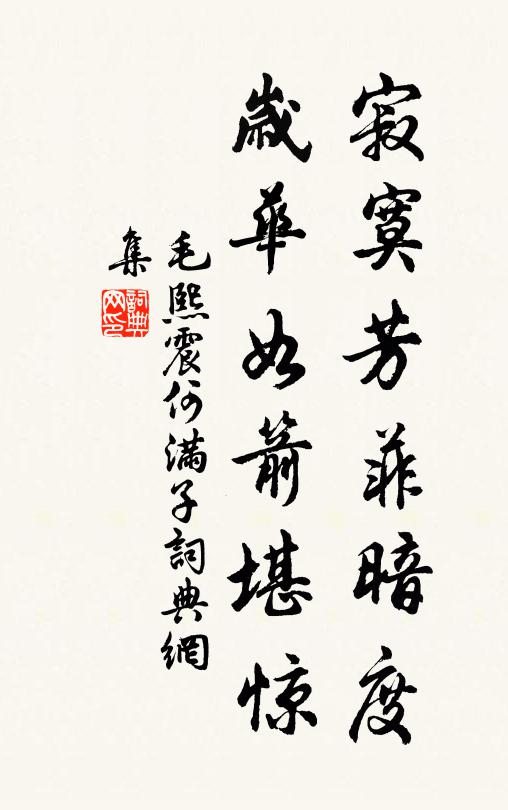 寂寞芳菲暗度
歲華如箭堪惊
毛熙震何滿子詞典網
集
詞典网印